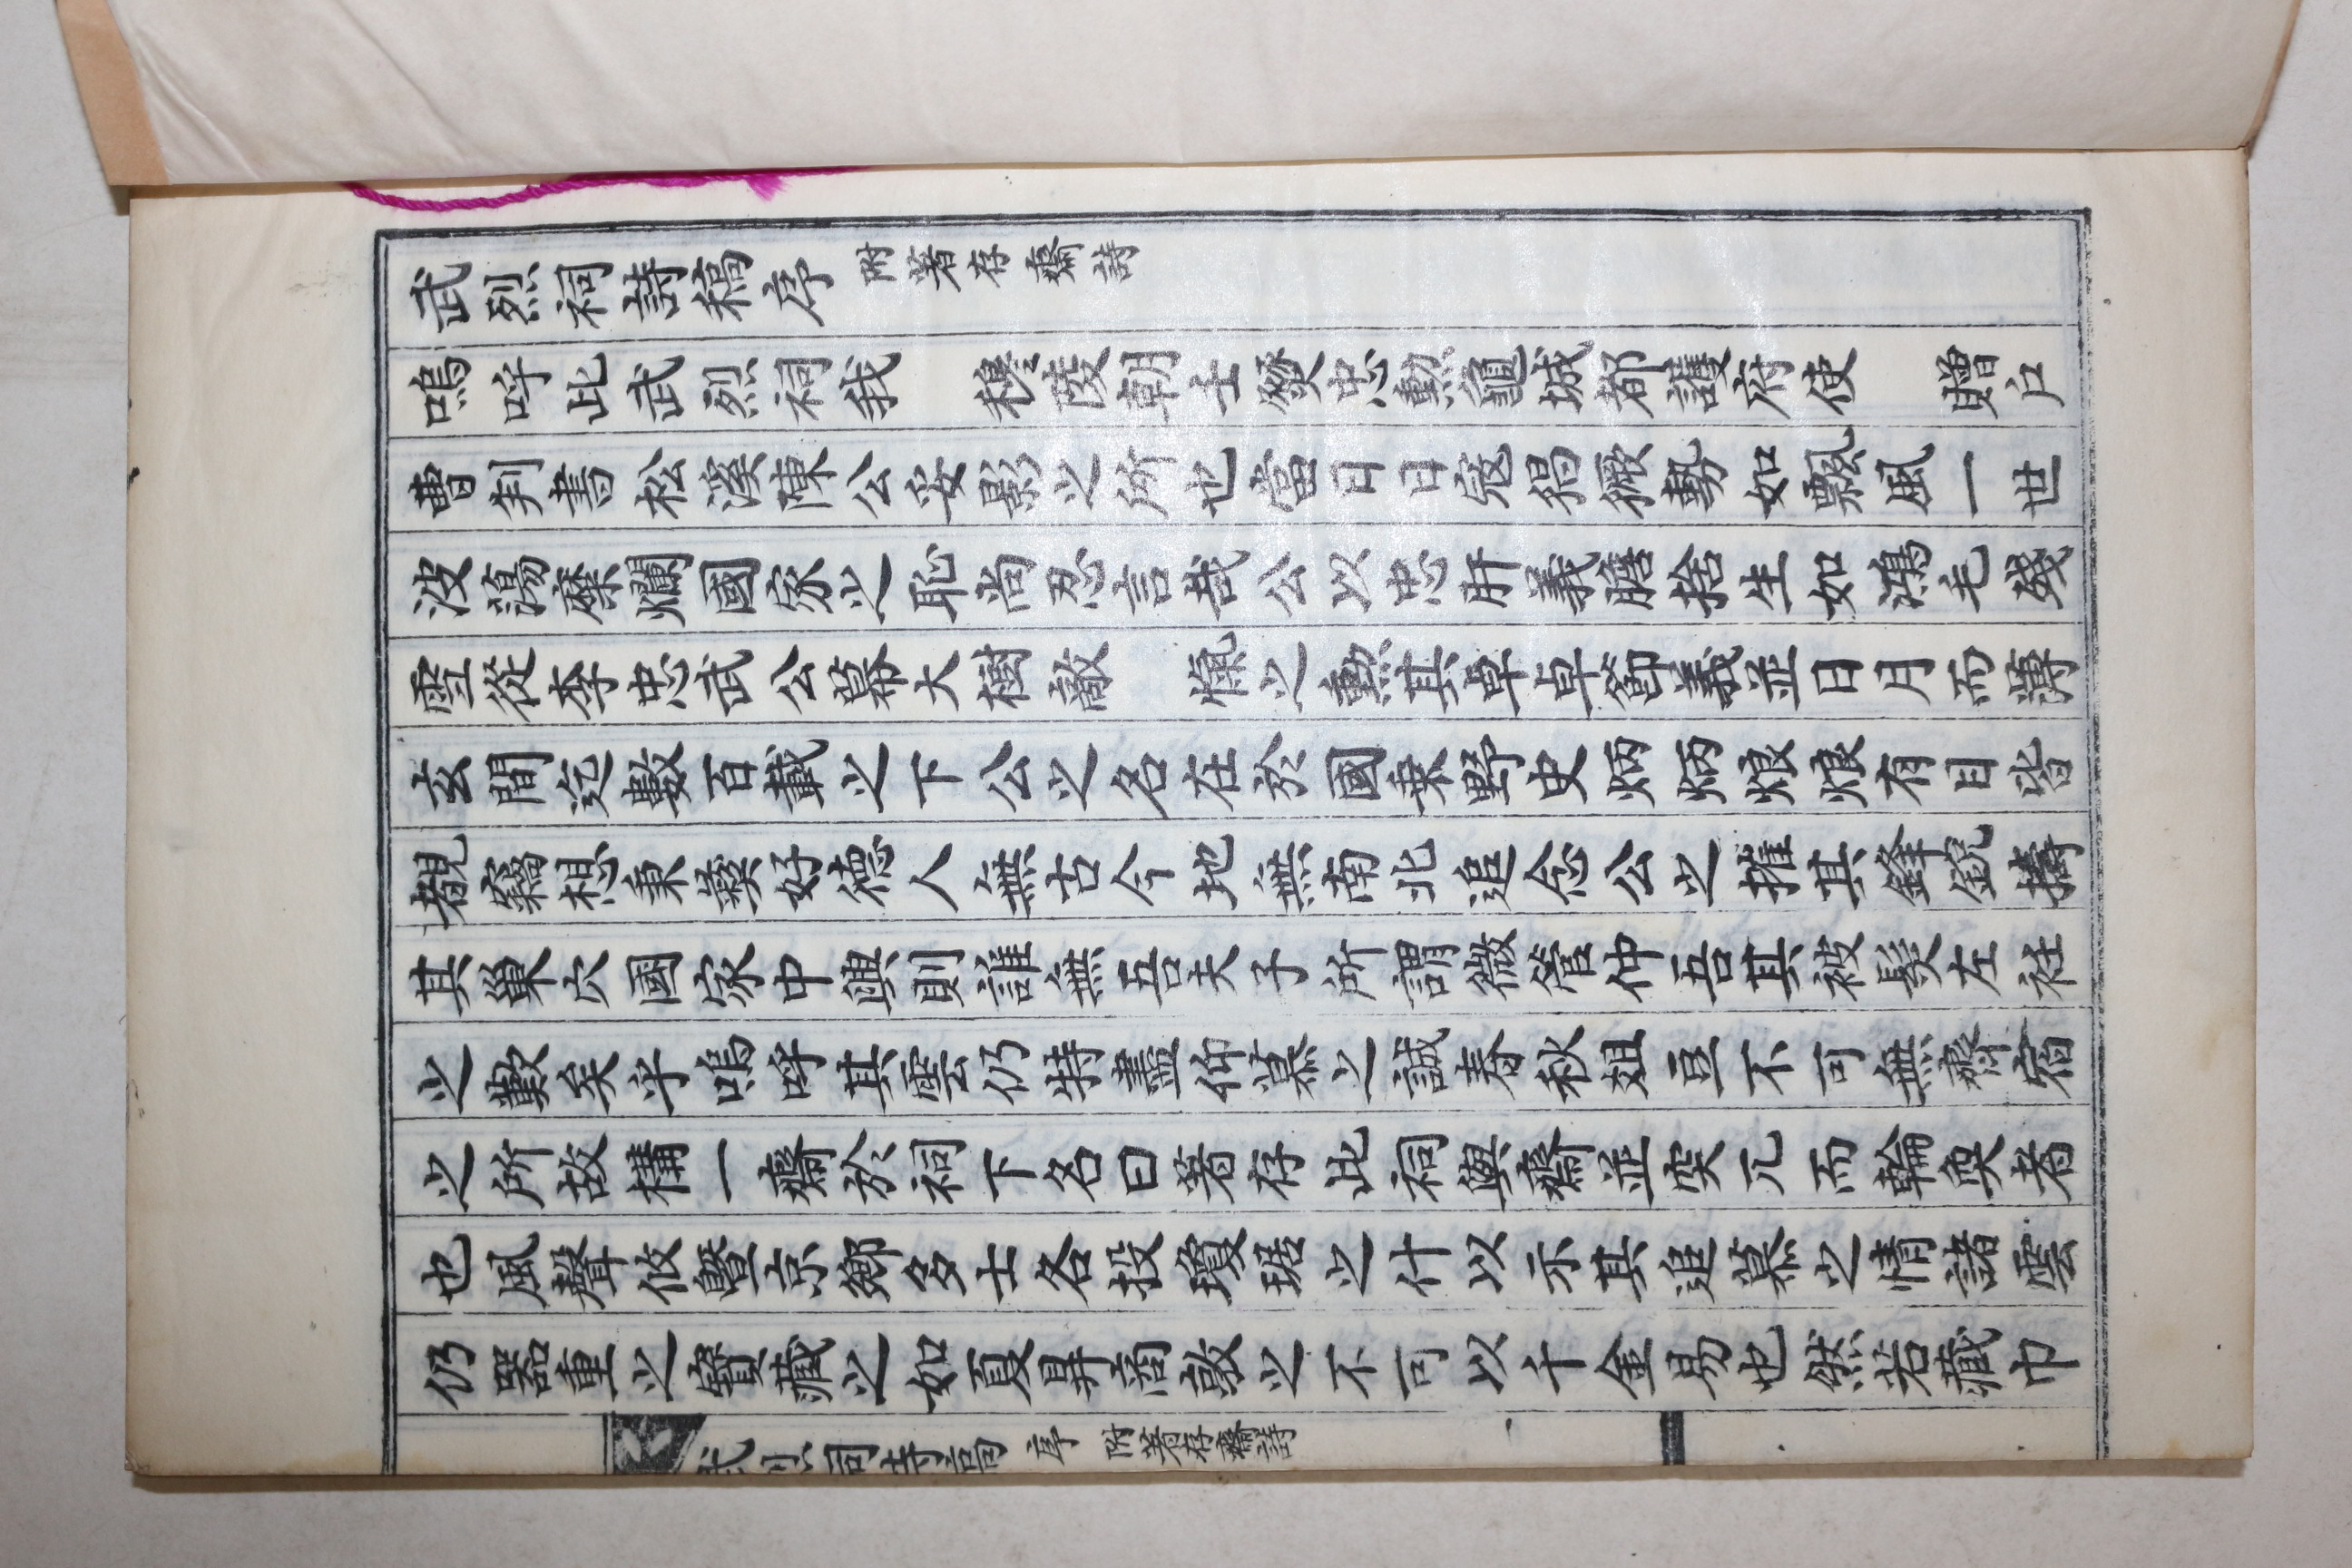 武烈祠詩稿序 附著存齋詩
嗚呼此武烈祠我 穆陵朝壬燹忠勳龜城都護府使 贈戶
曹判書松溪陳公妥影之所也當日日寇猖獗勢如飄風一世
波蕩糜爛國家之恥尚忍言哉公以忠肝義膽捨生如鴻毛殘
雪從李忠武公幕大樹敵 愾之勲其卓卓節義並日月而薄
玄間迄數百載之下公之名在於國乘野史炳炳烺烺有目皆
覩竊想秉彜好德人無古今地無南北追念公之摧其鋒銳擣
其巢穴國家中興則誰無吾夫子所謂微管仲吾其被髮左衽
之歎矣乎嗚呼其雲仍特盡仰慕之誠春秋俎豆不可無齊宿
之所故構一齋於祠下名曰著存此祠與齋並突兀而輪奐者
也風聲攸曁京鄉多士各投瓊琚之什以示其追慕之情諸雲
仍器重之寶藏之如夏鼎商敦之不可以千金易也然若藏巾
武烈祠詩稿 序 附著存齋詩 一